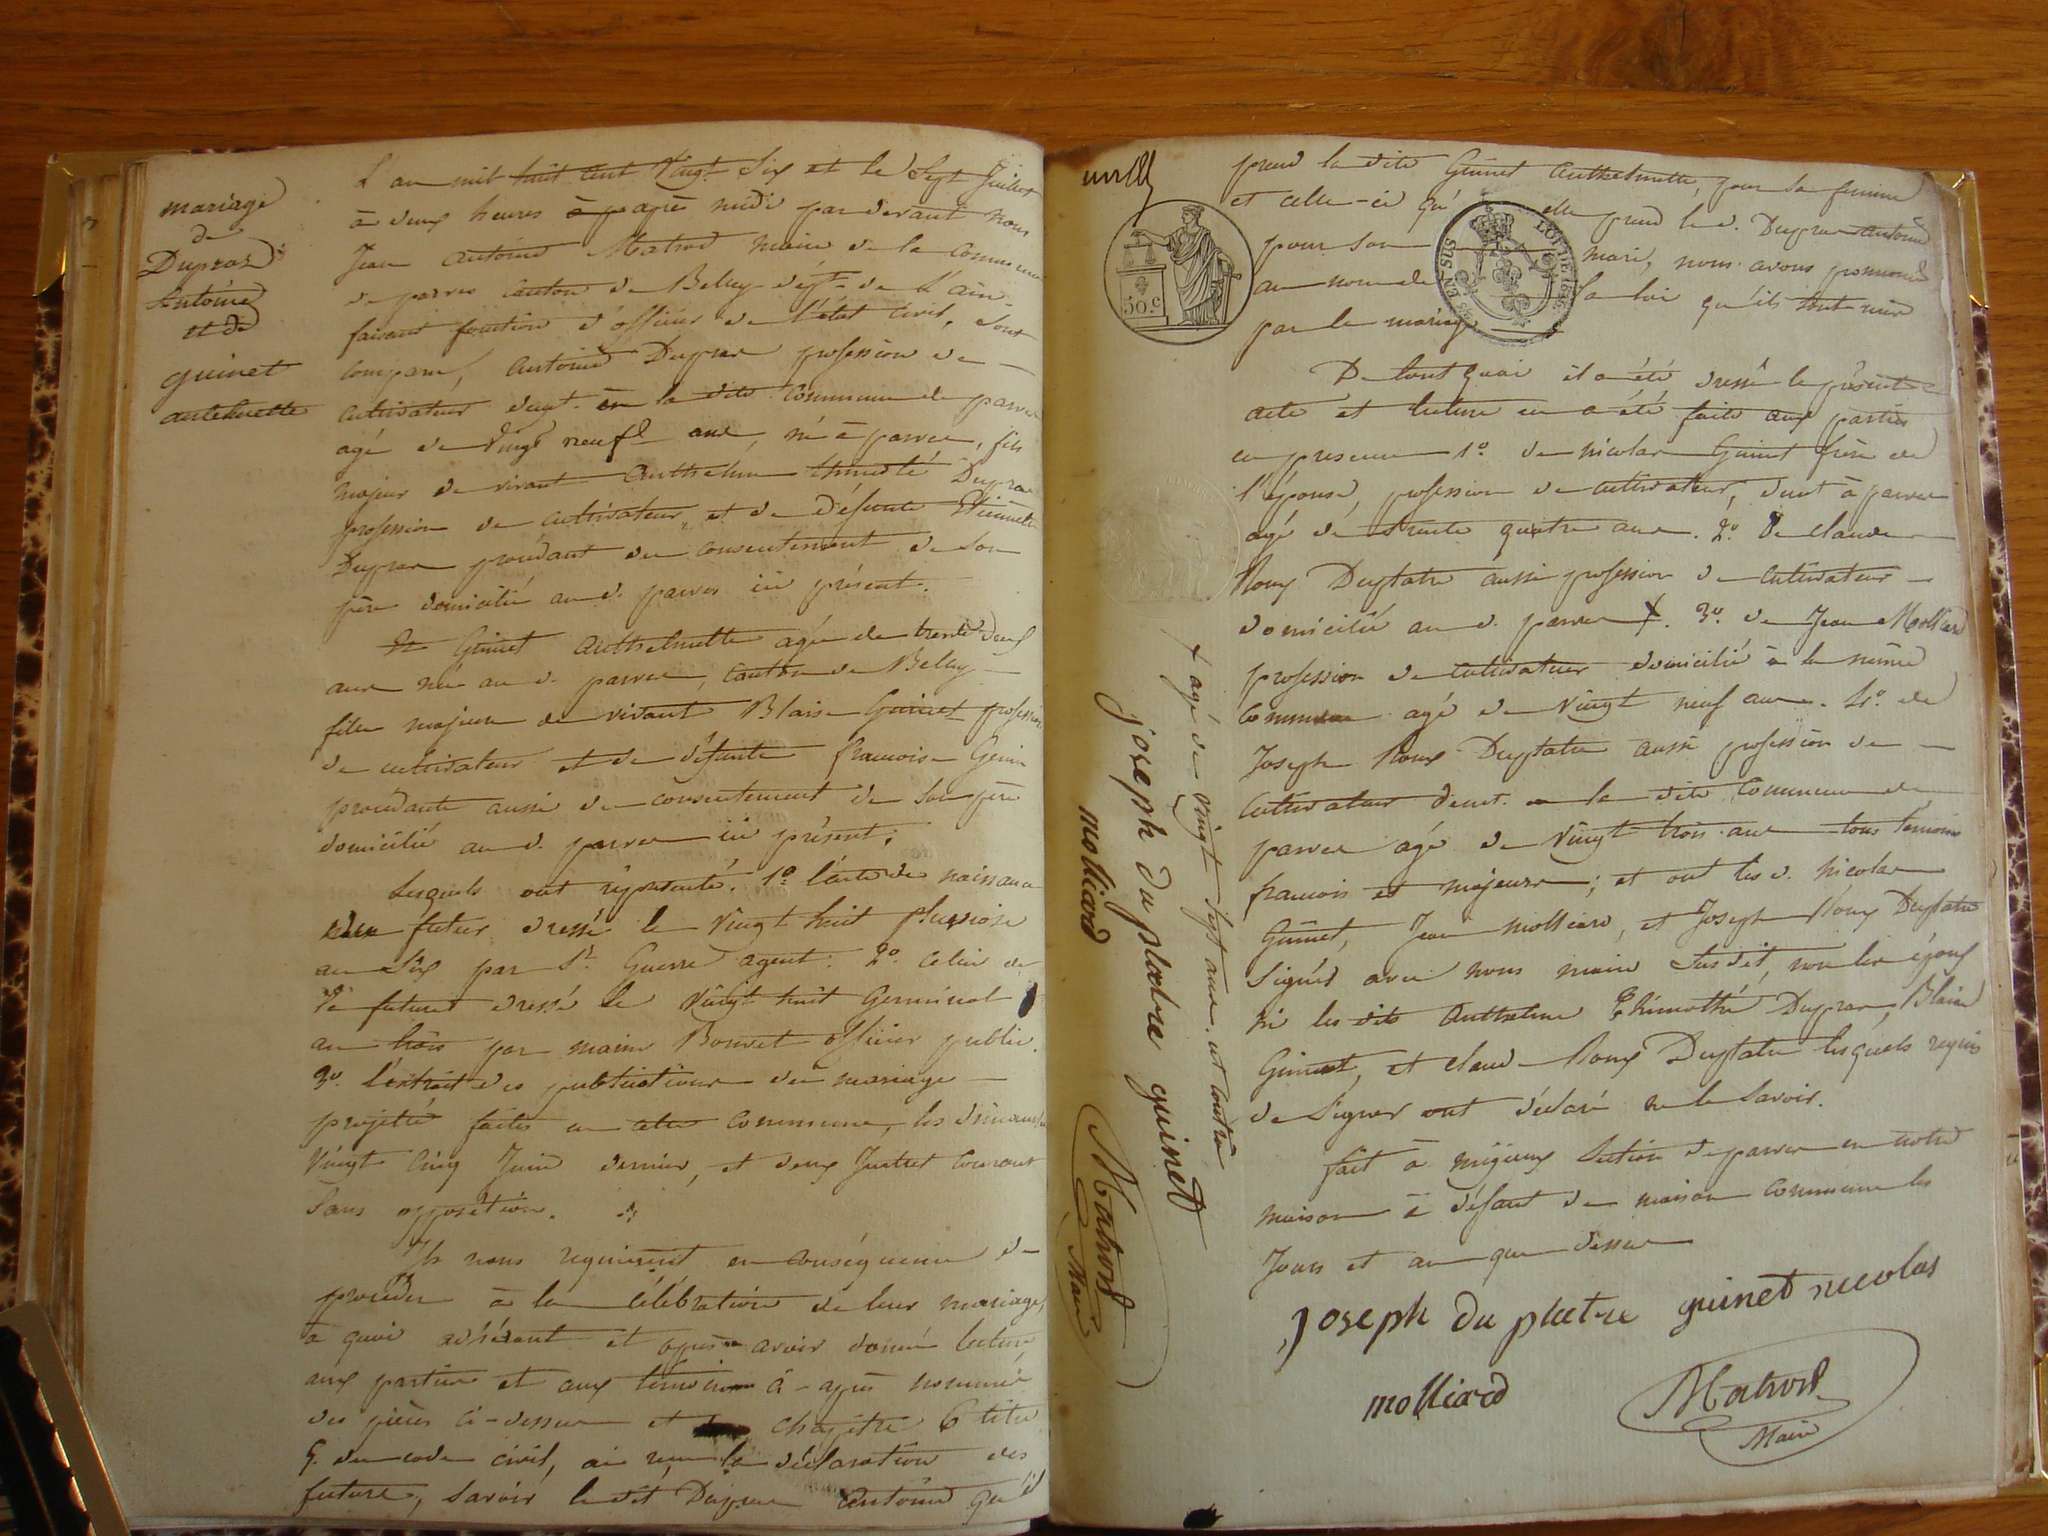 mariage
de
Dupraz
Antoine
et de
guinet
antelmette
L'an mil huit cent Vingt Six et le Sept Juillet
à deux heures après midi par devant nous
Jean Antoine Matrod maire de la commune
de parves canton de Belley dépt. de L'ain
faisant fonction d'officier de l'état civil, sont
comparus, Antoine Dupraz profession de
cultivateur demt. en la dite commune de parves
agé de Vingt neuf ans, né à parves, fils
majeur de vivant Anthelme thimoté Dupraz
profession de cultivateur, et de Défunte Etiennette
Dupraz procédant du consentement de Son
père domicilié au d. parves ici présent.
Et Guinet Anthelmette agée de trente deux
ans née au d. parves, canton de Belley
fille majeure de vivant Blaise Guinet profession
de cultivateur et de défunte francoise Genin
procédante aussi de consentement de Son père
domicilié au d. parves ici présent;
Lesquels ont représenté. 1º. l'acte de naissance
du futur dressé le Vingt huit pluviose
an Six par Sr. Guerre agent. 2º. Celui de
la future dressé le Vingt huit Germinal
an trois par maire Bouvet officier public.
3º. l'extrait des publications du mariage
projetté faites en cette commune, les dimanches
Vingt Cinq Juin dernier, et deux Juillet Courant
Sans opposition.
Ils nous requièrent en conséquence de
procéder à la Célébration de leur mariage,
à quoi adhérant et après avoir donné lecture
aux parties et aux témoins ci-après nommés
des pièces ci-dessus et chapitre 6 titre
5. du code civil, ai reçu la déclaration des
futurs, Savoir le dit Dupraz Antoine qu'il
prend la dite Guinet Anthelmette, pour Sa femme
et celle-ci qu'elle prend le d. Dupraz Antoine
pour Son mari, nous avons prononcé
au nom de la loi qu'ils sont unis
par le mariage
50.c
EN SUS
LOI DE 1816
De tout quoi il a été dressé le présent
acte et lecture en a été faite aux parties
en presence 1º. de nicolas Guinet frère de
l'épouse, profession de cultivateur, demt à parves
agé de trente quatre ans. 2º. De claude
Roux Duplatre aussi profession de cultivateur
domicilié au d. parves X. 3º. de Jean Molliard
profession de cultivateur domicilié à la même
commune agé de Vingt neuf ans. 4º. de
Joseph Roux Duplatre aussi profession de
Cultivateur demt. en la dite Commune de
parves agé de Vingt trois ans tous témoins
francois et majeurs; et ont les d. nicolas
Guinet, Jean molliard, et Joseph Roux Duplatre
Signés avec nous maire Susdit, non les époux
ni les dits Anthelme Thimothé Dupraz, Blaise
Guinet, et claude Roux Duplatre lesquels requis
de Signer ont déclaré ne le Savoir.
fait à migieux Section de parves en notre
maison à défaut de maison commune les
Jours et an que dessus
joseph du platre guinet nicolas
molliard
Matrod
Maire
X agé de Vingt Sept ans.
joseph du platre guinet
molliard
Matrod
Maire